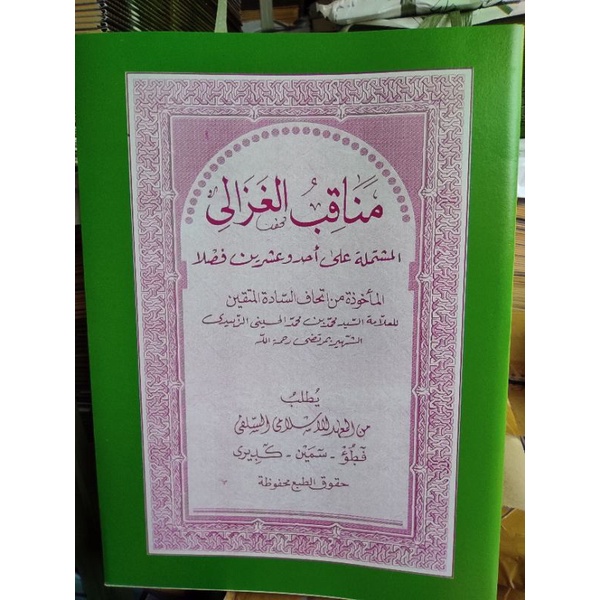 مَنَاقِبُ الغَزَالِي
المشتملة على أحد وعشرين فصلا
المأخوذة من اتحاف السادة المتقين
للعلامة السيد محمد بن محمد الحسيني الزبيدي
الشهير بمرتضى رحمه الله
يُطلب
من المعهد الاسلامى السلفى
فطؤ - سمين - كديرى
حقوق الطبع محفوظة